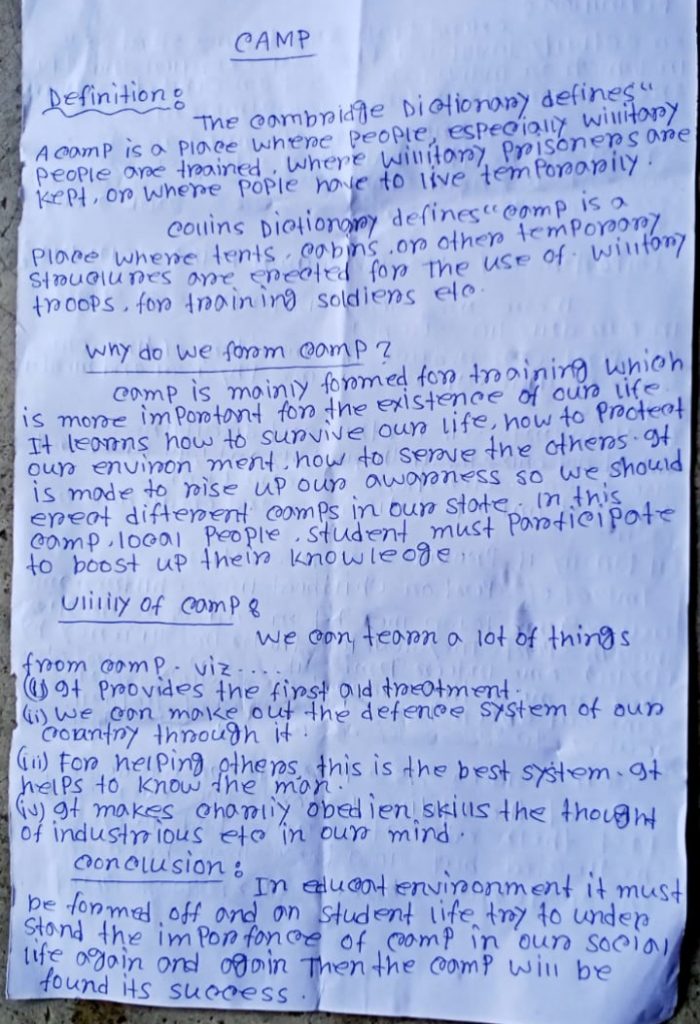 CAMP
Definition:
The Cambridge Dictionary defines "
A camp is a place where people, especially willitary
people are trained, where willitary prisoners are
kept, or where pople have to live temporarily.
Collins Dictionary defines "camp is a
place where tents, cabins, or other temporary
struclures are erected for the use of willitary
troops, for training soldiers etc.
Why do we form camp?
camp is mainly formed for training which
is more important for the existence of our life.
It learns how to survive our life, how to protect
our environ ment, how to serve the others. It
is made to rise up our awarness so we should
erect different camps in our state. In this
camp, local people, student must participate
to boost up their knowleoge.
Uliliy of camp:
We can, tearn a lot of things
from camp. viz....
(i) It provides the first aid treatment.
(ii) we can make out the defence system of our
country through it.
(iii) For helping others, this is the best system. It
helps to know the man.
(iv) It makes obedien, skills the thought
of industrious etc in our mind.
Conclusion:
In educat environment it must
be formed off and on student life, try to under
stand the importance of camp in our social
life again and again Then the camp will be
found its success.